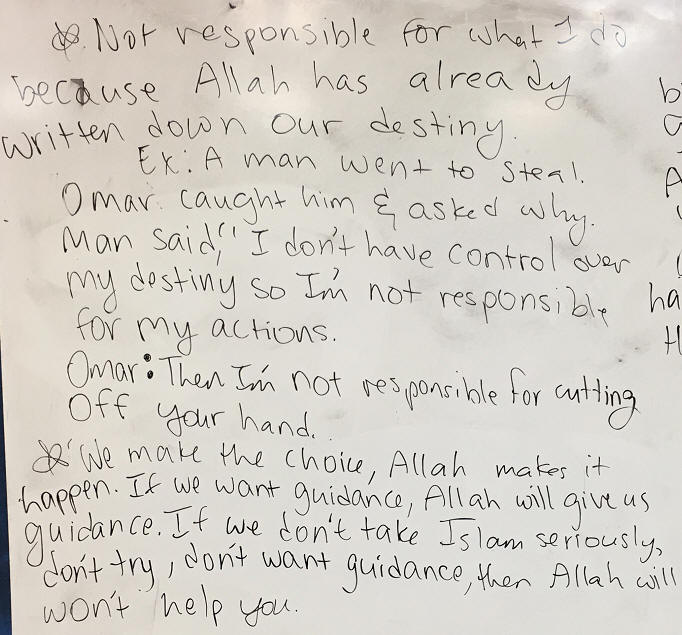 ☆. Not responsible for what I do
because Allah has already
written down our destiny.
Ex: A man went to steal.
Omar caught him & asked why.
Man said," I don't have control over
my destiny so I'm not responsible
for my actions.
Omar: Then I'm not responsible for cutting
Off your hand.
☆ We make the choice, Allah makes it
happen. If we want guidance, Allah will give us
guidance. If we don't take Islam seriously,
don't try, don't want guidance, then Allah will
won't help you.
b
A
ha
H